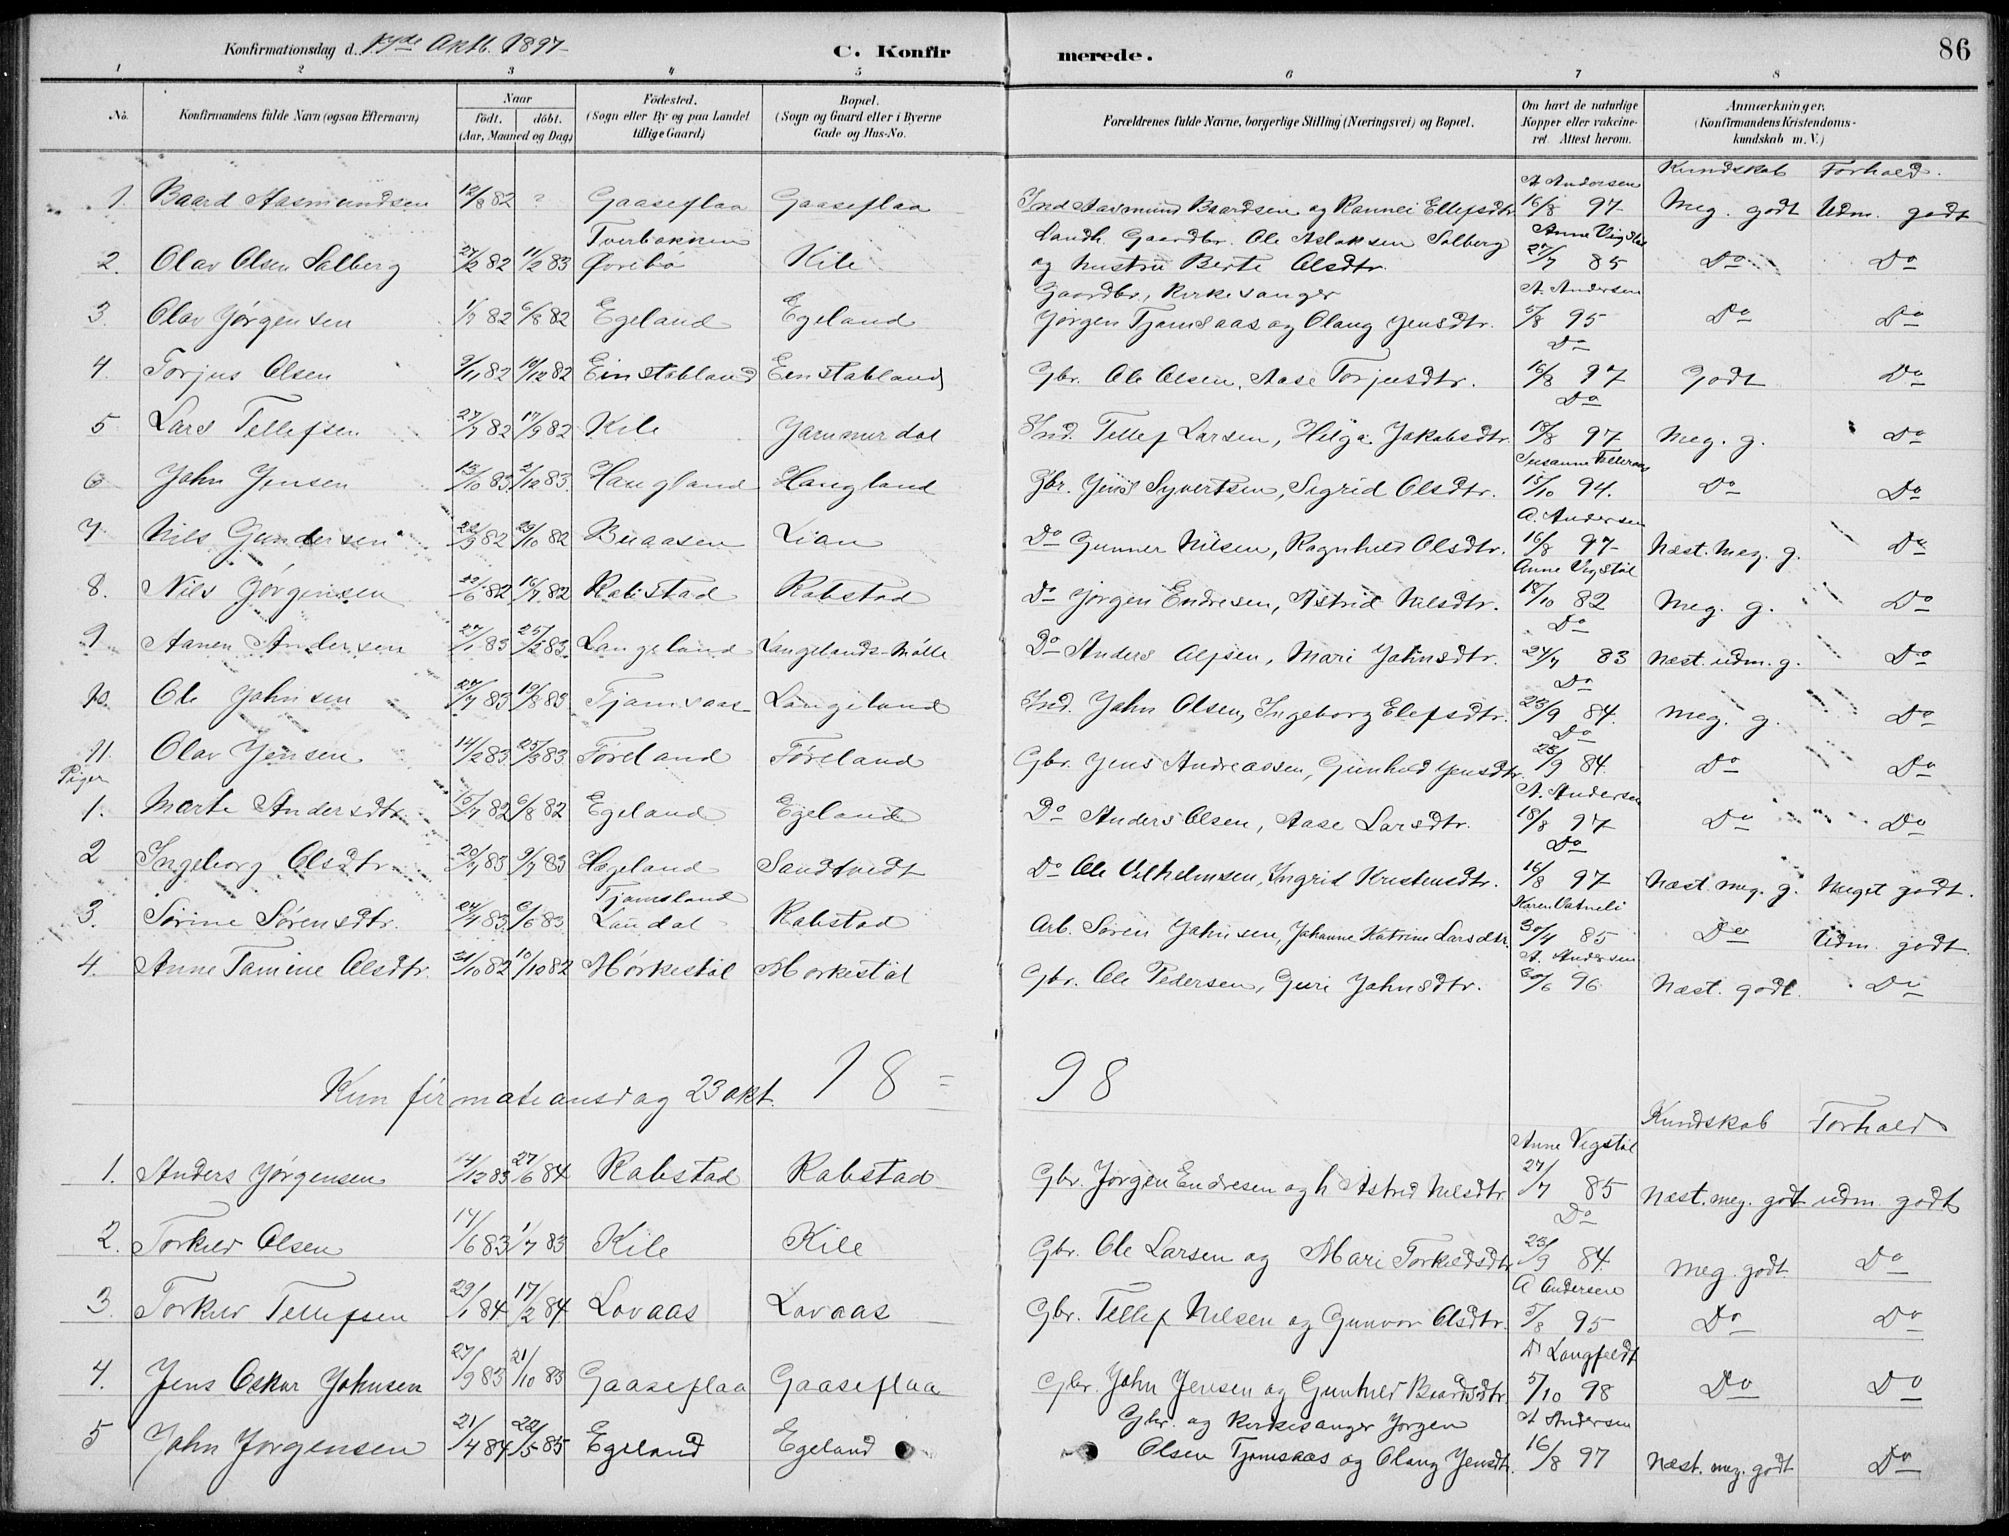 Konfirmationsdag d. Aktb. 1897 C. Konfirmerede. 86
1 2 3 4 5 6 7 8
No. Konfirmandens fulde Navn (ogsaa Efternavn) Naar født. døbt. (Aar, Maaned og Dag) Fødested. (Sogn eller By og paa Landet tillige Gaard) Bopæl. (Sogn og Gaard eller i Byerne Gade og Hus-No. Forældrenes fulde Navne, borgerlige Stilling (Næringsvei) og Bopæl. Om havt de naturlige Kopper eller vakcineret. Attest herom. Anmærkninger. (Konfirmandens Kristendomskundskab m. V.)
Kundskab Forhold.
1. Baard Aasmundsen 12/8 82 ? Gaaseflaa Gaaseflaa Ind Aasmund Baardsen og Rannei Ellefsdtr A Andersen 16/8 97 Meg. godt Udm. godt
2. Olav Olsen Salberg 27/2 82 11/2 83 Tverbakken Øvrebø Kile Landh. Gaardbr. Ole Aslaksen Solberg og hustru Berte Olsdtr. Anne Vigstøl 27/7 85 Do Do
3. Olav Jørgensen 1/7 82 6/8 82 Egeland Egeland Gaardbr, Kirkesanger Jørgen Tjomsaas og Olaug Jensdtr. A. Andersen 5/8 95 Do Do
4. Torjus Olsen 9/11 82 10/12 82 Einstabland Einstabland Gbr. Ole Olsen, Aase Torjusdtr. Do 16/8 97 Godt Do
5 Lars Tellefsen 27/7 82 17/9 82 Kile Jammerdal Ind. Tellef Larsen, Helga Jakobsdtr. Do 18/8 97 Meg. g. Do
6 John Jensen 13/10 83 2/12 83. Haugland Haugland Gbr. Jens Syvertsen, Sigrid Olsdtr. Susanne 15/10 94. Do Do
7. Nils Gundersen 22/9 82 29/10 82 Buaasen Lian Do Gunner Nilsen, Ragnhild Olsdtr. A. Andersen 16/8 97 Næst. Meg. g. Do
8. Nils Jørgensen 22/6 82 16/7 82 Rabstad Rabstad Do Jørgen Endresen, Astrid Nilsdtr. Anne Vigstøl 18/10 82 Meg. g. Do
9 Aanen Andersen 27/1 83 25/3 83. Langeland Langelands-Mølle Do Anders Olsen, Mari Johnsdtr. Do 24/7 83 Næst. udm. g. Do
10. Ole Johnsen 27/7 83 19/8 83 Tjomsaas Langeland Ind. John Olsen, Ingeborg Elefsdtr. Do 23/9 84. Meg. g. Do
11 Olav Jensen 14/2 83 25/3 83 Føreland Føreland Gbr. Jens Andreassen, Gunhild Jensdtr Do 23/9 84. Do Do
Piger
1. Marte Andersdtr. 15/7 82 6/8 82 Egeland Egeland Do Anders Olsen, Aase Larsdtr. A. Andersen 18/8 97 Do Do
2 Ingeborg Olsdtr 20/7 83 9/7 83 Hægeland Sandtvedt Do Ole Vilhelmsen, Ingrid Kristensdtr. Do 16/8 97 Næst. meg. g. Meget godt.
3. Sørine Sørensdtr. 24/4 83. 6/6 83 Tjomsland Laudal Rabstad Arb. Søren Johnsen, Johanne Katrine Larsdtr. Karen Vatneli 30/4 85 Do Udm. godt.
4. Anne Tamine Olsdtr. 31/10 82 10/12 82 Mørkestøl Mørkestøl Gbr. Ole Pedersen, Guri Johnsdtr. A. Andersen 30/6 96. Næst. godt. Do
Kunfirmationsdag 23 okt. 18 = 98
Kundskab Forhold
1. Anders Jørgensen 14/12 83 27/6 84 Rabstad Rabstad Gbr. Jørgen Endresen og h Astrid Nilsdtr. Anne Vigstøl 27/7 85 Næst. meg. godt udm. godt
2. Torkild Olsen 14/6 83 1/7 83 Kile Kile Gbr. Ole Larsen og Mari Torkildsdtr Do 23/9 84. Meg godt Do
3. Torkild Tellefsen 29/1 84 17/2 84 Lovaas Lovaas Gbr. Tellef Nilsen og Gunvor Olsdtr. A Andersen 5/8 95 Do Do
4. Jens Oskar Johnsen 27/9 83 21/10 83 Gaaseflaa Gaaseflaa Gbr. John Jensen og Gunhild Baardsdtr. D Langfeldt 5/10 98 Do Do
5 John Jørgensen 21/4 84 22/5 85 Egeland Egeland Gbr. og Kirkesanger Jørgen Olsen Tjomsaas og Olaug Jensdtr. A Andersen 16/8 97 Næst. meg. godt Do